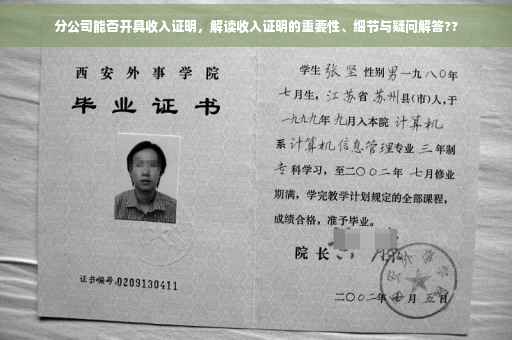 分公司能否开具收入证明，解读收入证明的重要性、细节与疑问解答??
西安外事学院
毕业证书
证书编号:0209130411
学生 张坚 性别 男 一九八〇年
七月生，江苏省 苏州县(市)人,于
一九九九年 九月入本院 计算机
系 计算机信息管理专业 三 年制
专科学习，至二〇〇二年 七月修业
期满，学完教学计划规定的全部课程，
成绩合格，准予毕业。
院长
二〇〇二年 月 五日